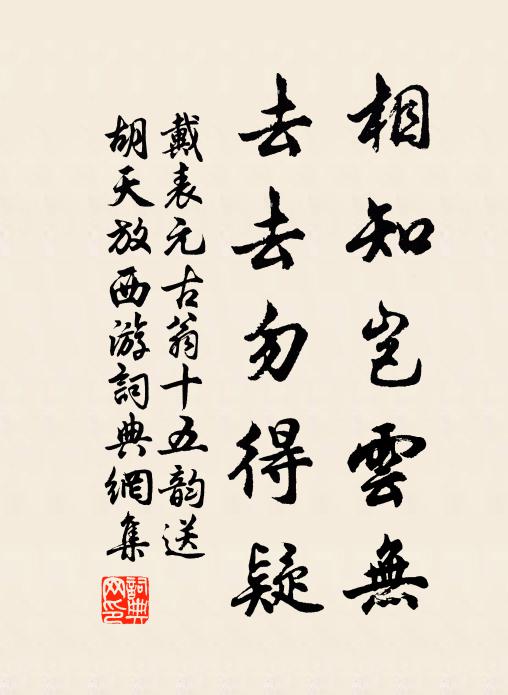 相知豈雲無
去去勿得疑
戴表元古翁十五韵送
胡天放西游詞典網集
詞典網印